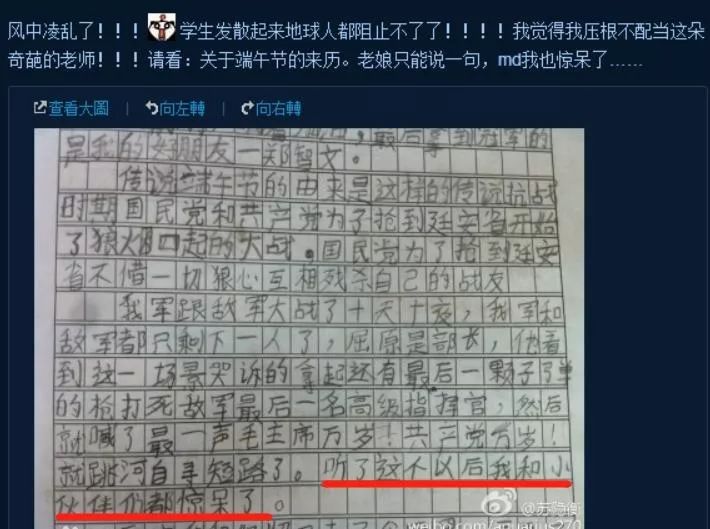 风中凌乱了！！！学生发散起来地球人都阻止不了了！！！！我觉得我压根不配当这朵
奇葩的老师！！！请看：关于端午节的来历。老娘只能说一句，md我也惊呆了……
查看大圖 | 向左轉 | 向右轉
最后拿到冠军的
是我的好朋友一郑智文。
传说端午节的由来是这样的传说抗战
时期国民党和共产党为了抢到延安省开始
了狼烟四起的大战。国民党为了抢到廷安
省不惜一切狠心互相残杀自己的战友
我军跟敌军大战了十天十夜，我军和
敌军都只剩下一人了，屈原是部长，他看
到这一场景哭诉的拿起还有最后一颗子弹
的枪打死敌军最后一名高级指挥官，然后
就喊了最一声毛主席万岁！共产党万岁！
就跳河自手短路了。听了这个以后我和小
伙伴们都惊呆了。
@苏隐衡